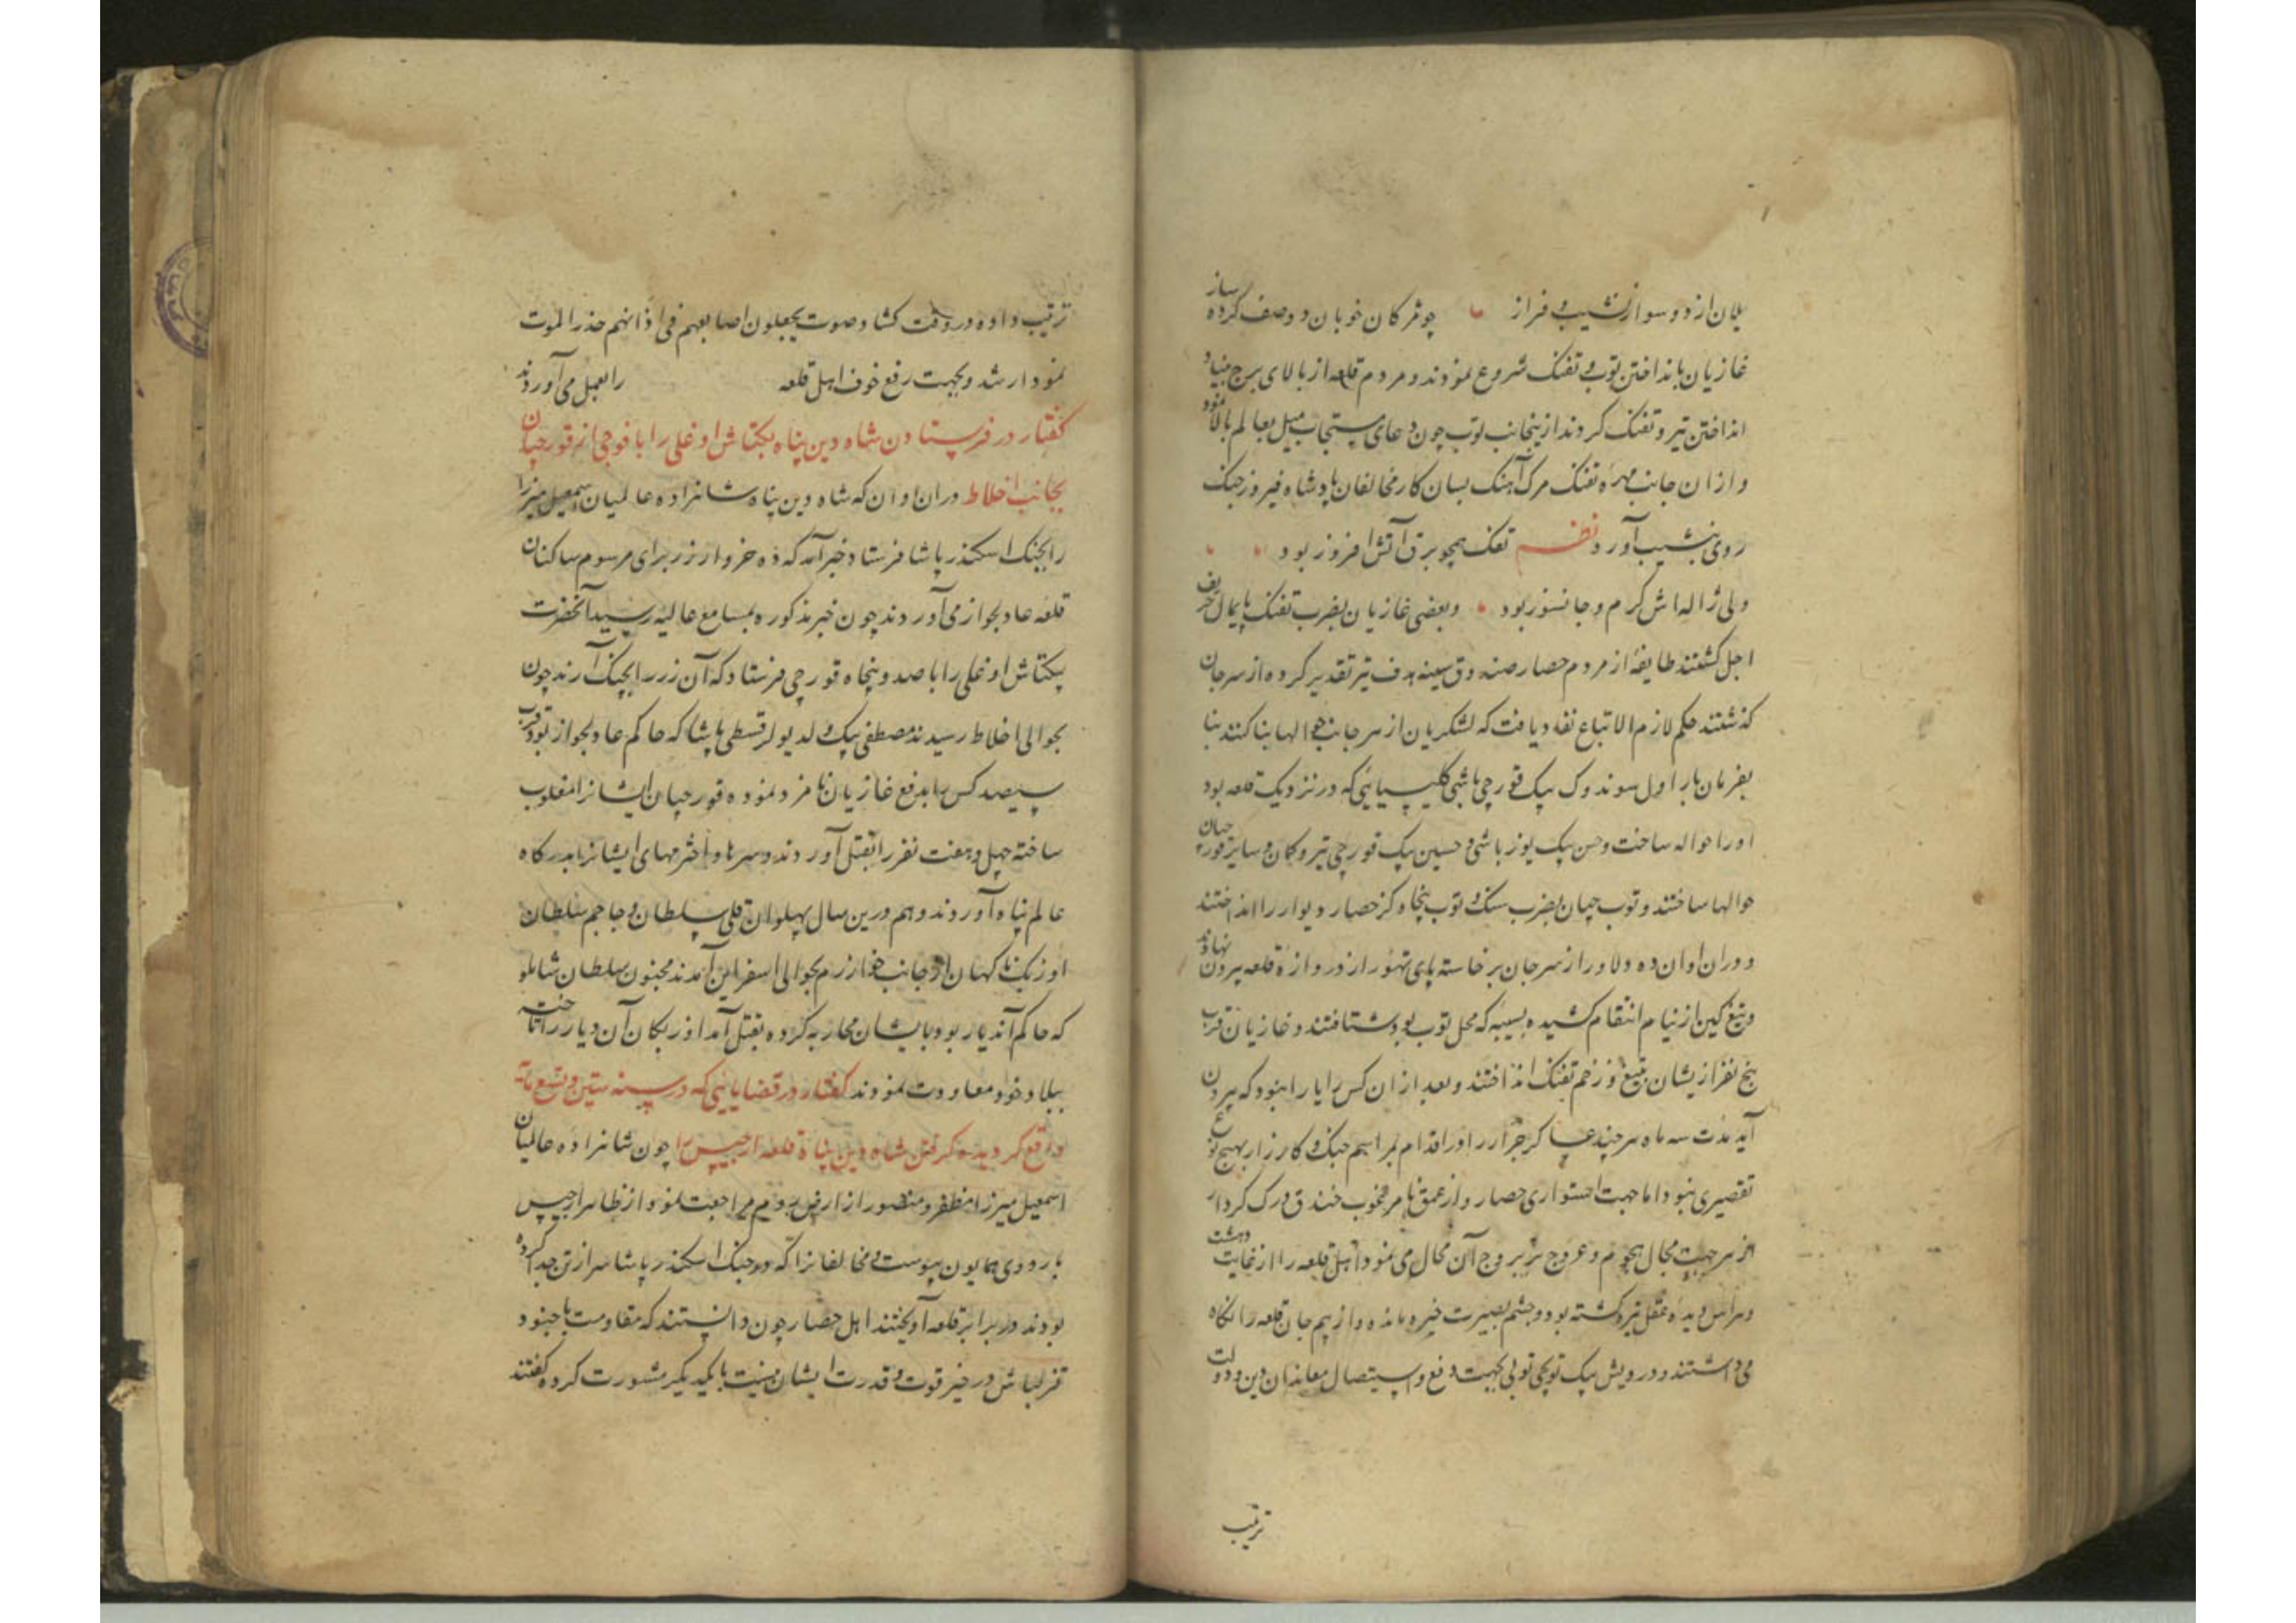 یلان از دو سو از نشیب و فراز چو مژگان خوبان دو صف کرده ساز
غازیان بانداختن توپ و تفنک شروع نمودند و مردم قلعه از بالای برج بنیاد
انداختن تیر و تفنک کردند ازینجانب توپ چون دعای مستجاب میل بعالم بالا نمود
و ازان جانب مهره تفنک مرک آهنک بسان کار مخالفان پادشاه فیروز جنک
روی بنشیب آورد نظم تفک همچو برق آتش افروز بود
ولی ژاله اش کرم و جانسوز بود و بعضی غازیان بضرب تفنک پایمال خریف
اجل کشتند طایفه از مردم حصار صندوق سینه هدف تیر تقدیر کرده از سر جان
کذشتند حکم لازم الاتباع نفاد یافت که لشکریان از هر جانب حوالها بنا کنند بنا
بفرمان بار اول سوندوک بیک قورچی باشی کلیسیایی که در نزدیک قلعه بود
اورا حواله ساخت و حسن بیک یوزباشی و حسین بیک قورچی تیر و کمان و سایر قورچیان
حوالها ساختند و توب چیان بضرب سنک توپ پنجاه کز حصار دیوار را انداختند
و دران اوان ده دلاور از سر جان برخاسته پای تهور از دروازه قلعه بیرون نهادند
و تیغ کین از نیام انتقام کشیده بسیبه که محل توب بود شتافتند و غازیان قرب
پنج نفر ازیشان بتیغ و زخم تفنک انداختند و بعد ازان کس را یارا نبود که بیرون
آید مدت سه ماه هر چند عساکر جرار را در اقدام بمراسم جنک و کارزار بهیچ نوع
تقصیری نبود اما جهت استواری حصار و از عمق نامرغوب خندق درک کردار
از هر جهت مجال هجوم و عروج بر بروج آن محال می نمود اهل قلعه را از غایت دهشت
و هراس دیده عقل تیره کشته بود و چشم بصیرت خیره مانده و از بیم جان قلعه را نکاه
می داشتند و درویش بیک توپچی توپی بجهت دفع و استیصال معاندان دین و دولت
ترتیب
ترتیب داده در وقت کشاد صوت یجعلون اصابعهم فی اذانهم حذر الموت
نمودار شد و بجهت رفع خوف اهل قلعه را بعمل می آوردند
کفتار در فرستادن شاه دین پناه بکتاش اوغلی را با فوجی از قورچیان
بجانب اخلاط دران اوان که شاه دین پناه شاهزاده عالمیان اسمعیل میرزا
را بجنک اسکندر پاشا فرستاد خبر آمد که ده خروار زر برای مرسوم ساکنان
قلعه عادلجواز می آوردند چون خبر مذکوره بمسامع عالیه رسید آنحضرت
بکتاش اوغلی را با صد و پنجاه قورچی فرستاد که آن زر را بچنک آرند چون
بحوالی اخلاط رسیدند مصطفی بیک ولد یولر قسطی پاشا که حاکم عادلجواز بود قرب
سیصد کس را بدفع غازیان نامزد نموده قورچیان ایشانرا مغلوب
ساخته چهل و هفت نفر را بقتل آوردند و سرها و اخترمهای ایشانرا بدرکاه
عالم پناه آوردند و هم درین سال پهلوان قلی سلطان و حاجم سلطان
اوزبک ناکهان از جانب خوارزم بحوالی اسفراین آمدند مجنون سلطان شاملو
که حاکم آندیار بود بایشان محاربه کرده بقتل آمد اوزبکان آن دیار را تاخته
ببلاد خود معاودت نمودند کفتار در قضایایی که در سنه ستین و تسع مائه
واقع کردیده کرفتن شاه دین پناه قلعه ارجیس را چون شاهزاده عالمیان
اسمعیل میرزا مظفر و منصور از ارض روم مراجعت نمود از ظاهر ارجیس
باردوی همایون پیوست مخالفانرا که در جنک اسکندر پاشا سر از تن جدا کرده
بودند در برابر قلعه آویختند اهل حصار چون دانستند که مقاومت با جنود
قزلباش در حیز قوت و قدرت ایشان نیست با یکدیکر مشورت کرده کفتند